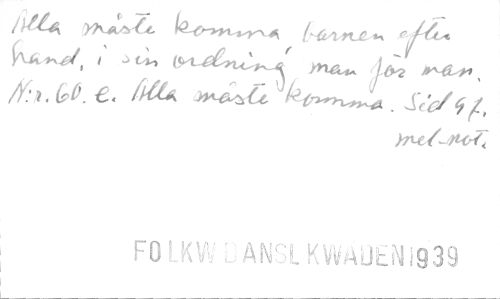 Alla måste komma barnen efter
hand, i sin ordning, man för man.
N:r. 60. e. Alla måste komma. Sid 97.
mel-not.
FOLKW DANSL KWADEN 1939